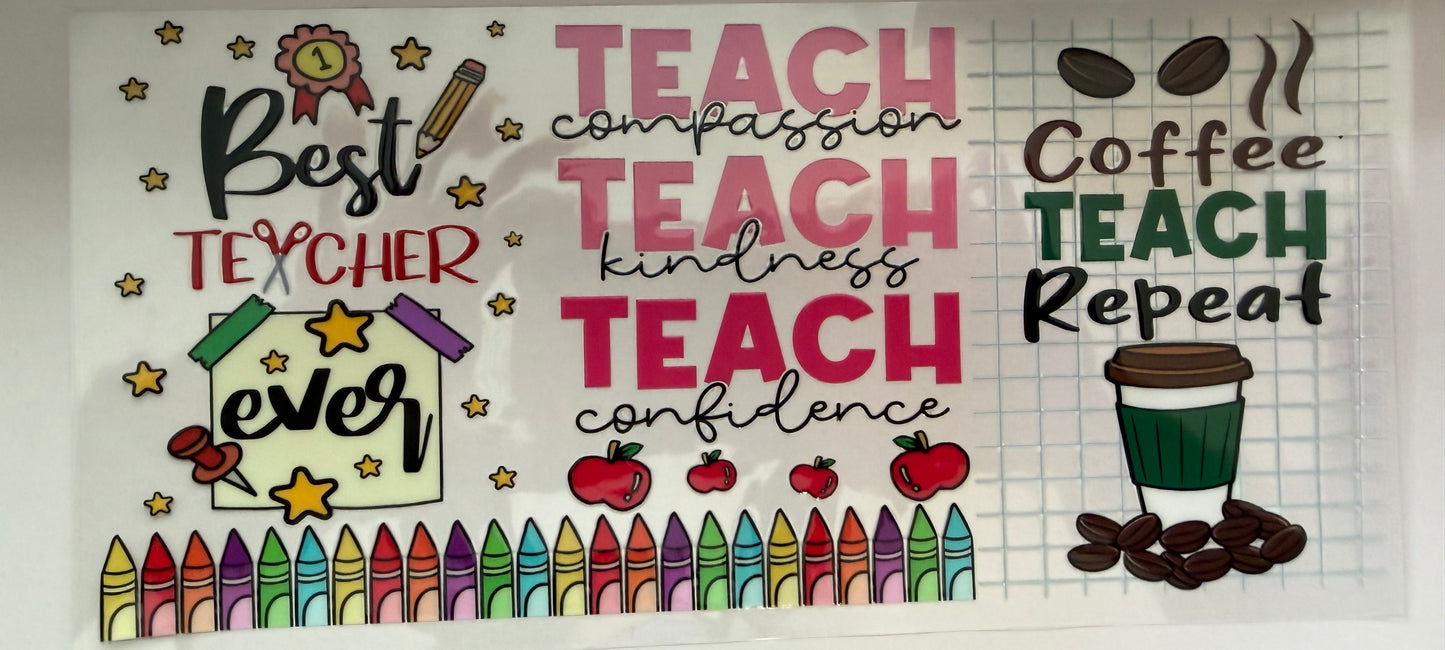 1
Best
TEACHER
ever
TEACH
compassion
TEACH
kindness
TEACH
confidence
Coffee
TEACH
Repeat